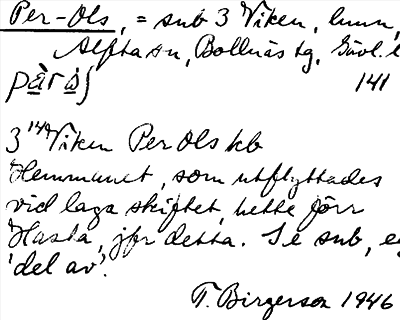 Per-Ols, = sub 3 Viken, hmn,
Alfta sn, Bollnäs tg, Gävl. l
141
3¹⁴⁴ Viken Per Ols kb
Hemmanet, som utflyttades
vid laga skiftet, hette förr
Hasta, jfr detta. Se sub, eg
'del av'.
T. Birgerson 1946